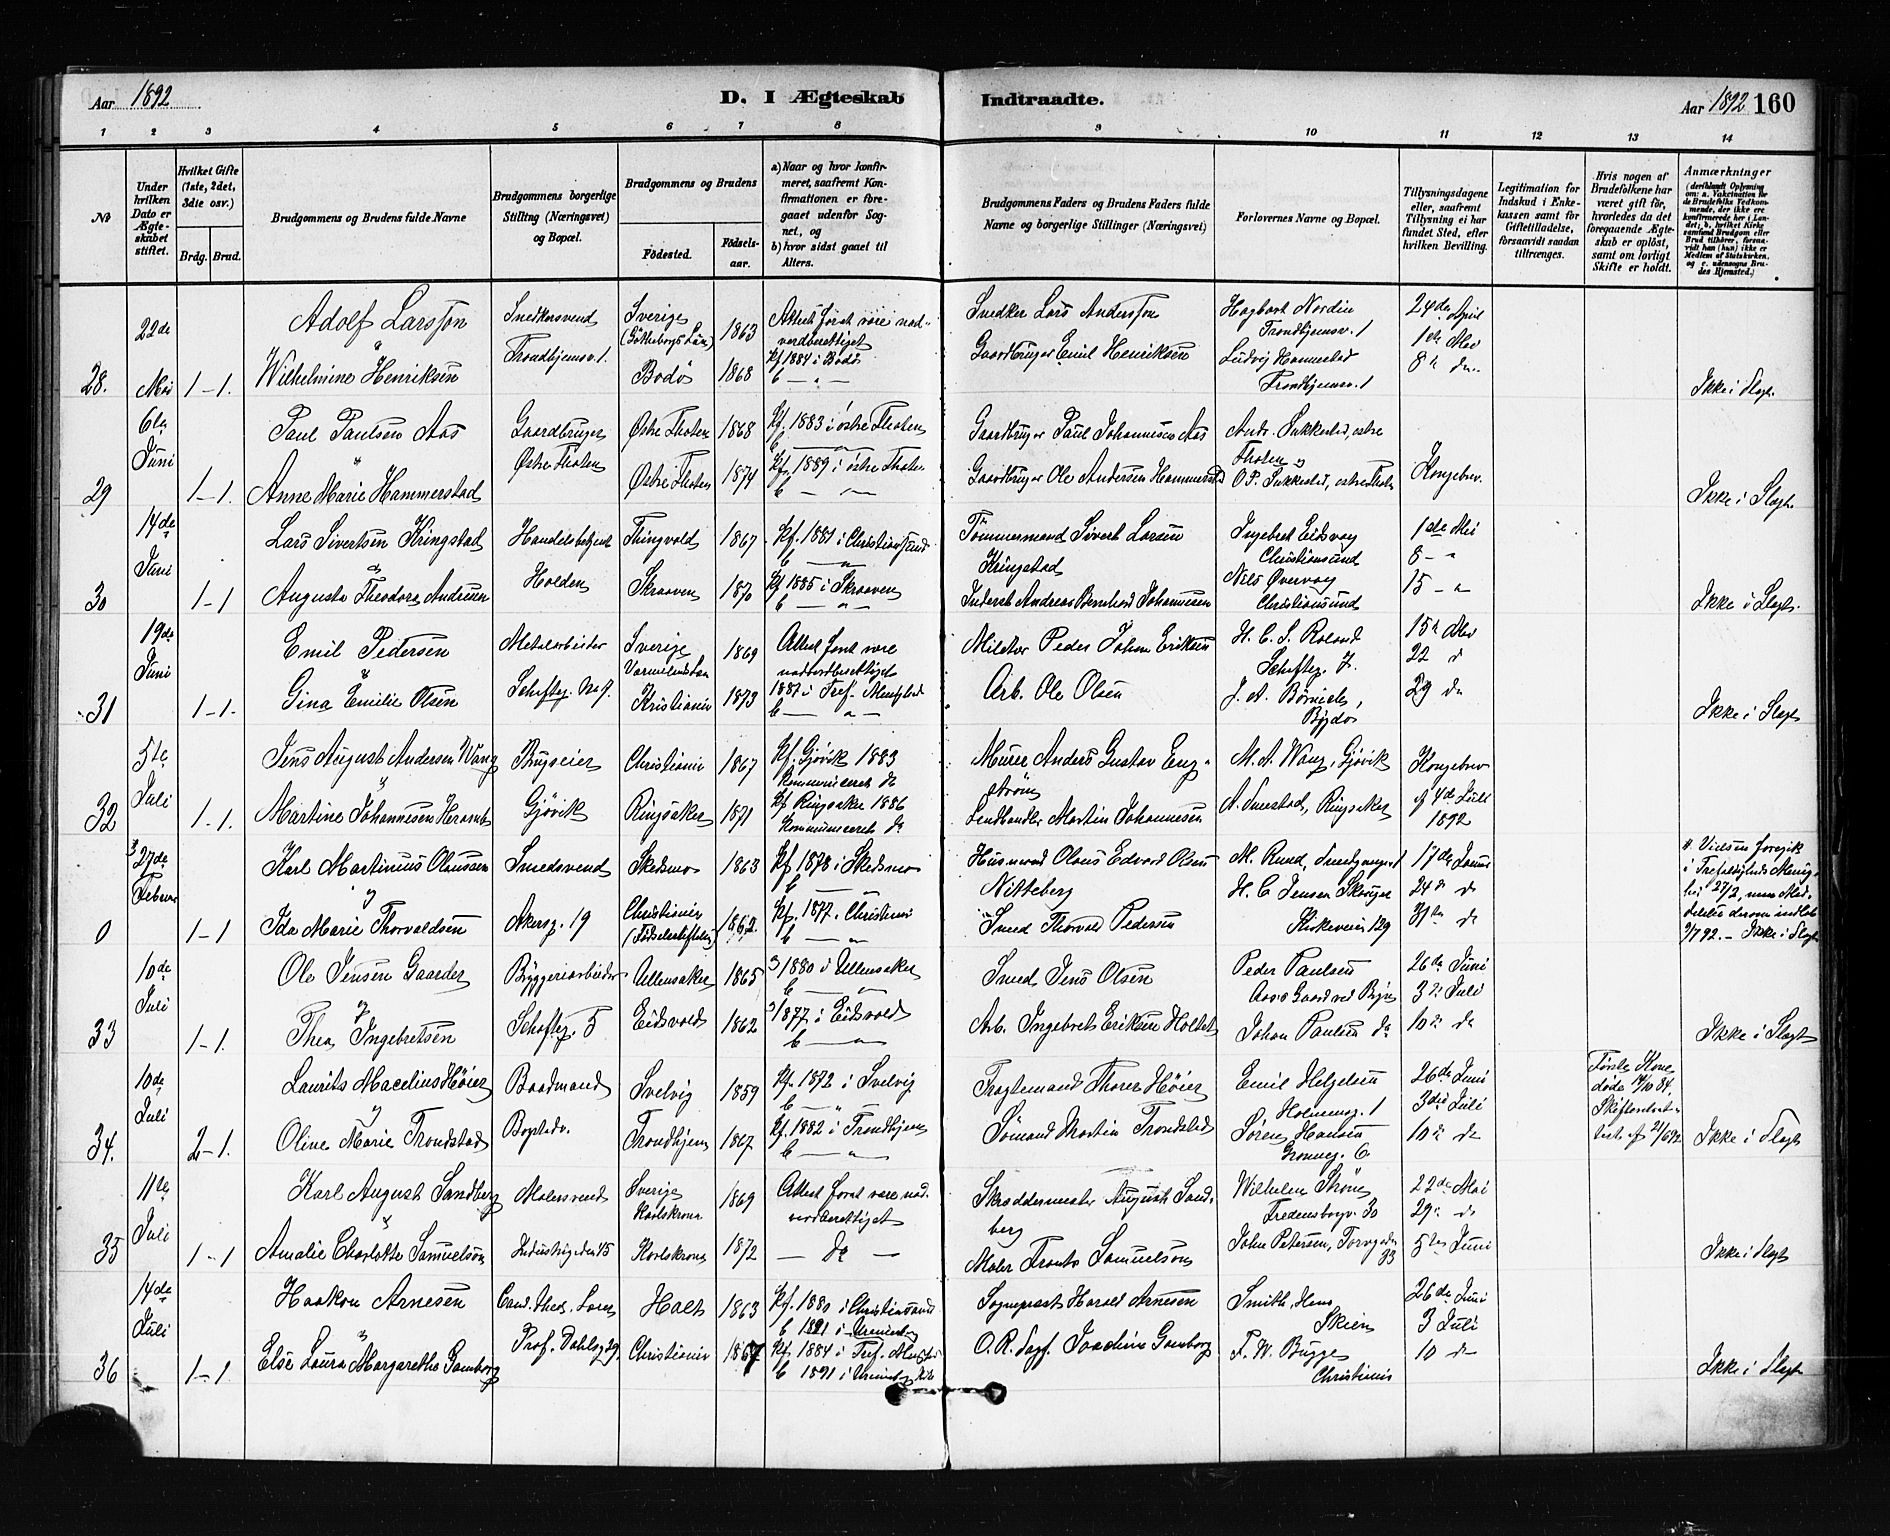 Aar 1892
D. I Ægteskab Indtraadte.
Aar 1892 160
1 2 3 4 5 6 7 8 9 10 11 12 13 14
No
Under hvilken Dato er Ægteskabet stiftet.
Hvilket Gifte (1ste, 2det, 3die osv.)
Brdg. Brud.
Brudgommens og Brudens fulde Navne
Brudgommens borgerlige Stilling (Næringsvei) og Bopæl.
Brudgommens og Brudens
Födested.
Födselsaar.
a) Naar og hvor konfirmeret, saafremt Konfirmationen er foregaaet udenfor Sognet, og
b) hvor sidst gaaet til Alters.
Brudgommens Faders og Brudens Faders fulde Navne og borgerlige Stillinger (Næringsvei)
Forlovernes Navne og Bopæl.
Tillysningsdagene eller, saafremt Tillysning ei har fundet Sted, efter hvilken Bevilling.
Legitimation for Indskud i Enkekassen samt for Giftetilladelse, forsaavidt saadan tiltrænges.
Hvis nogen af Brudefolkene har været gift för, hvorledes da det foregaaende Ægteskab er oplöst, samt om lovligt Skifte er holdt.
Anmærkninger
28. 22de Mai 1-1.
Adolf Larsson Snedkersvend Sverige 1863 Attest foret være nadverdberettiget Snedker Lars Andersson Hagbart Nordin Trondhjemsv. 1 24de April
Wilhelmine Henriksen Trondhjemsv. 1. Bodö 1868 Kf 1884 i Bodö Gaardbruger Emil Henriksen Ludvig Trondhjemsv. 1 1ste Mai 8de do. Ikke i Slægt.
29 6te Juni 1-1.
Paul Paulsen Aas Gaardbruger Østre Thoten 1868 Kf. 1883 i östre Thoten Gaardbruger Paul Johannesen Aas
Anne Marie Hammerstad Østre Thoten Østre Thoten 1874 Kf. 1889 i östre Thoten Gaardbruger Ole Andersen Hammerstad Kongebrev. Ikke i Slægt.
30 14de Juni 1-1
Lars Sivertsen Kringstad Handelsbetjent Thingvold 1867 Kf. 1881 i Christiansund Tömmermand Sivert Larsen Kringstad Ingebret Eidsvaag Christiansund 1ste Mai 8 - "
Augusta Theodora Andresen Holden Skraaven 1870 Kf 1885 i Skraaven Inderst Andreas Bernhard Johannesen Nils Øvervaag Christiansund 15 - " Ikke i Slægt.
31 19de Juni 1-1.
Emil Pedersen Metalarbeider Sverige 1869 Attest foret være nadverdberettiget Peder Johan Eriksen H. C. S. Roland 15de Mai 22 do
Gina Emilie Olsen Kristiania 1873 Arb. Ole Olsen J. A. Börnick, Bygdø 29 do Ikke i Slægt
32 5te Juli 1-1.
Jens August Andersen Wang Brugseier Christiania 1867 Kf. Gjövik 1883 Kommuniceret do Murer Anders Gustav Engström M. A. Wang, Gjövik Kongebrev
Martine Johannesen Gjövik Ringsaker 1871 Kf Ringsaker 1886 Kommuniceret do Landhandler Martin Johannesen Ringsaker af 4de Juli 1892
0 27de Februar 1-1
Karl Martinius Olaussen Smedsvend Skedsmo 1863 Kf 1878 i Skedsmo Husmand Olaus Edvard Olsen Nitteberg M. Rund, 17de Januar 24de do
Ida Marie Thorvaldsen Akersg. 19 Christiania 1862. Kf. 1877. Christiania Smed Thorvald Pedersen H. C. Jensen Kirkeveien 129 31te do Vielsen foregik i Trefoldigheds Menighed 27/2, men Meddelelse derom indløb 9/7 92. - Ikke i Slægt
33 10de Juli 1-1.
Ole Jensen Gaarder Bryggeriarbeider Ullensaker 1865 1880 i Ullensaker Smed Jens Olsen Peder Paulsen 26de Juni 3de Juli
Thea Ingebretsen Schøfteg. 5 Eidsvold 1862 1877 i Eidsvold Arb. Ingebret Eriksen Holtet Johan Paulsen do 10de do Ikke i Slægt
34. 10de Juli 2-1.
Laurits Macelius Höier Baadmand Svelvig 1859 Kf. 1872 i Svelvig Fragtemand Thorer Höier Emil Helgesen Holmensg. 1 26de Juni 3die Juli Første Kone døde 14/10 84.
Olive Marie Trondstad Trondhjem 1867. Kf. 1882 i Trondhjem Sömand Martin Trondstad Sören Hansen Grønneg. 6 10de do 21/6 92 Ikke i Slægt
35 11te Juli 1-1
Karl August Sandberg Malersvend Sverige Karlskrona 1869 Attest foret være nadverdberettiget Skræddermester August Sandberg Wilhelm Ström Fredensborgv. 22de Mai 29de do
Amalie Charlotte Samuelson Industrigaden 15 Karlskrona 1872 - do - Maler Frants Samuelson John Petersen, Torvgaden 33 5te Juni Ikke i Slægt
36 14de Juli 1-1
Haakon Arnesen Cand. Theol. Lærer Holt 1863 Kf. 1880 i Christiansand 1891 i Uranienborg Sogneprest Harald Arnesen Smith, Skien 26de Juni 3 Juli
Else Laura Margarethe Gamborg Prof. Dahlsg. 29. Christiania 1867 Kf. 1884 i Tref. Menighed 1891 i Uranienborg O. R. Sagf. Joachim Gamborg F. W. Bugge Christiania 10 do Ikke i Slægt